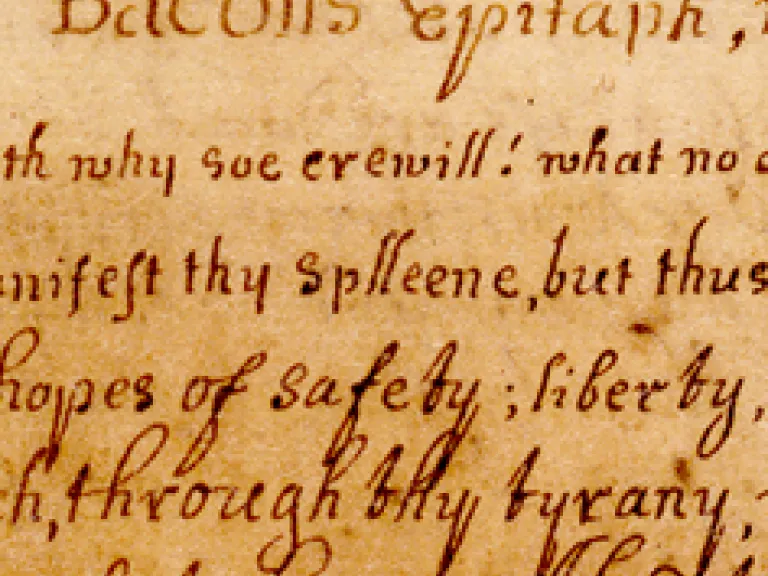 Bacons Epitaph,
why soe crewill! what no
thy Splleene, but thus
hopes of safety; liberty,
through thy tyrany,